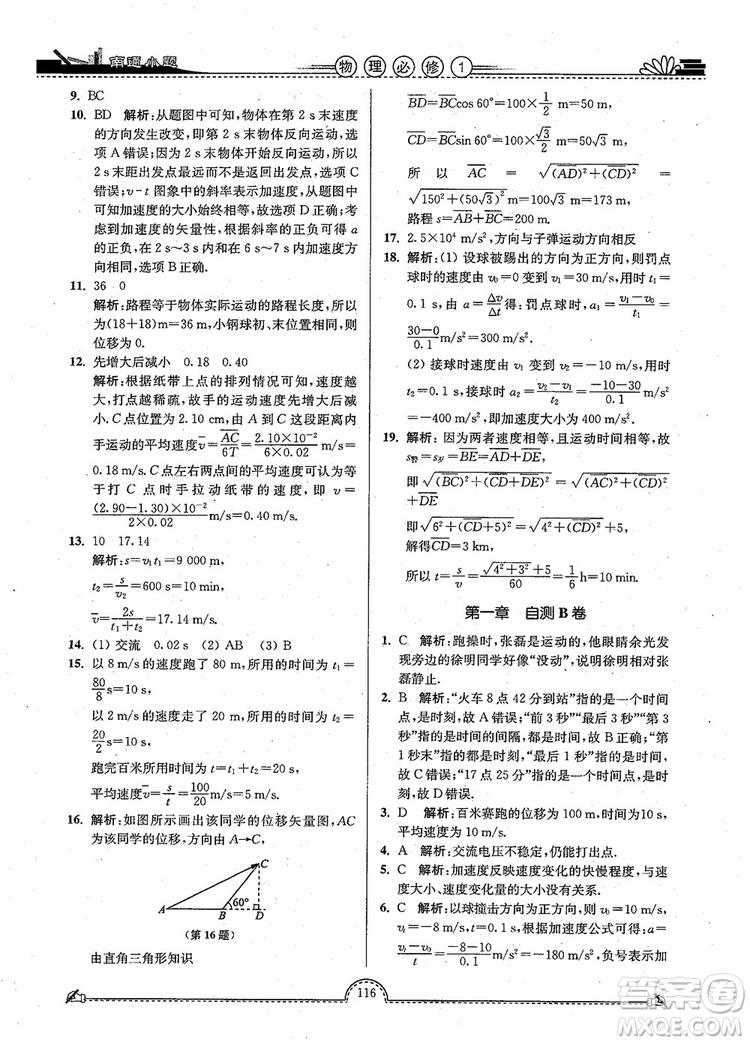 南通小题
物理必修1
9. BC
10. BD 解析:从题图中可知,物体在第 2 s 末速度
的方向发生改变,即第 2 s 末物体反向运动,选
项 A 错误;因为 2 s 末物体开始反向运动,所以
2 s 末距出发点最远而不是返回出发点,选项 C
错误;v-t 图象中的斜率表示加速度,从题图中
可知加速度的大小始终相等,故选项 D 正确;考
虑到加速度的矢量性,根据斜率的正负可得 a
的正负,在 2 s~3 s 内和在 6 s~7 s 内物体运动
方向相同,选项 B 正确.
11. 36 0
解析:路程等于物体实际运动的路程长度,所以
为(18+18)m=36 m,小钢球初、末位置相同,所以
位移为 0.
12. 先增大后减小 0.18 0.40
解析:根据纸带上点的排列情况可知,速度越
大,打点越稀疏,故手的运动速度先增大后减
小.C 点位置为 2.10 cm,由 A 到 C 这段距离内
手运动的平均速度v̄=AC/6T=2.10×10⁻²/(6×0.02) m/s=
0.18 m/s.C 点左右两点间的平均速度可认为等
于打 C 点时手拉动纸带的速度,即 v=
(2.90-1.30)×10⁻²/(2×0.02) m/s=0.40 m/s.
13. 10 17.14
解析:s=v₁t₁=9 000 m,
t₂=s/v₂=600 s=10 min,
v̄=2s/(t₁+t₂)=17.14 m/s.
14. (1) 交流 0.02 s (2) AB (3) B
15. 以 8 m/s 的速度跑了 80 m,所用的时间 t₁=
80/8 s=10 s,
以 2 m/s 的速度跑了 20 m,所用的时间 t₂=
20/2 s=10 s,
跑完百米所用的时间为 t=t₁+t₂=20 s,
平均速度v̄=s/t=100/20 m/s=5 m/s.
16. 解析:如图所示画出该同学的位移矢量图,AC
为该同学的位移,方向由 A→C,
C
60°
A B D
(第 16 题)
由直角三角形知识
BD=BCcos 60°=100×1/2 m=50 m,
CD=BCsin 60°=100×√3/2 m=50√3 m,
所以 AC=√((AD)²+(CD)²)=
√(150²+(50√3)²) m=100√3 m=173 m,
路程 s=AB+BC=200 m.
17. 2.5×10⁴ m/s²,方向与子弹运动方向相反
18. 解析:(1) 设球被踢出的方向为正方向,则罚点
球时的速度由 v₀=0 变到 v₁=30 m/s,用时 t₁=
0.1 s,由 a=Δv/Δt得:罚点球时,a₁=(v₁-v₀)/t₁=
(30-0)/0.1 m/s²=300 m/s².
(2) 接球时速度由 v₁ 变到 v₂=-10 m/s,用时
t₂=0.1 s,接球时 a₂=(v₂-v₁)/t₂=(-10-30)/0.1 m/s²
=-400 m/s²,即加速度大小为 400 m/s².
19. 解析:因为两者速度相等,且运动时间相等,故
s警=s歹=BE=AD+DE,
即√((BC)²+(CD+DE)²)=√((AC)²+(CD)²)+DE,
即√(6²+(CD+5)²)=√(4²+(CD)²)+5,
解得CD=3 km,
所以 t=s/v=(√(4²+3²)+5)/60=1/6 h=10 min.
第一章 自测 B 卷
1. C 解析:跑操时,张磊是运动的,他眼睛余光发
现旁边的徐明同学好像“没动”,说明徐明相对张
磊静止.
2. B 解析:“火车 8 点 42 分到站”指的是一时
刻,是时刻,故 A 错误;“前 3 秒”“最后 3 秒”“第 3
秒”指的都是时间的间隔,都是时间,故 B 正确;“第
1 秒末”指的都是时刻,“第 1 秒内”指的是时间,
故 C 错误;“17 点 25 分”指的是时刻,“最后 3 秒”
指的是时间,故 D 错误.
3. D 解析:百米赛跑的位移为 100 m,故可求得
平均速度为 10 m/s.
4. A 解析:交流电压不稳定,仍能打出点.
5. C 解析:加速度反映速度变化的快慢程度,与速
度大小、速度变化量的大小没有关系.
6. C 解析:以球撞击方向为正方向,则 v₀=10 m/s,
v₁=-8 m/s,根据加速度公式可得:a=
(v₁-v₀)/t=(-8-10)/0.1 m/s²=-180 m/s²,负号表示加
116
答案圈